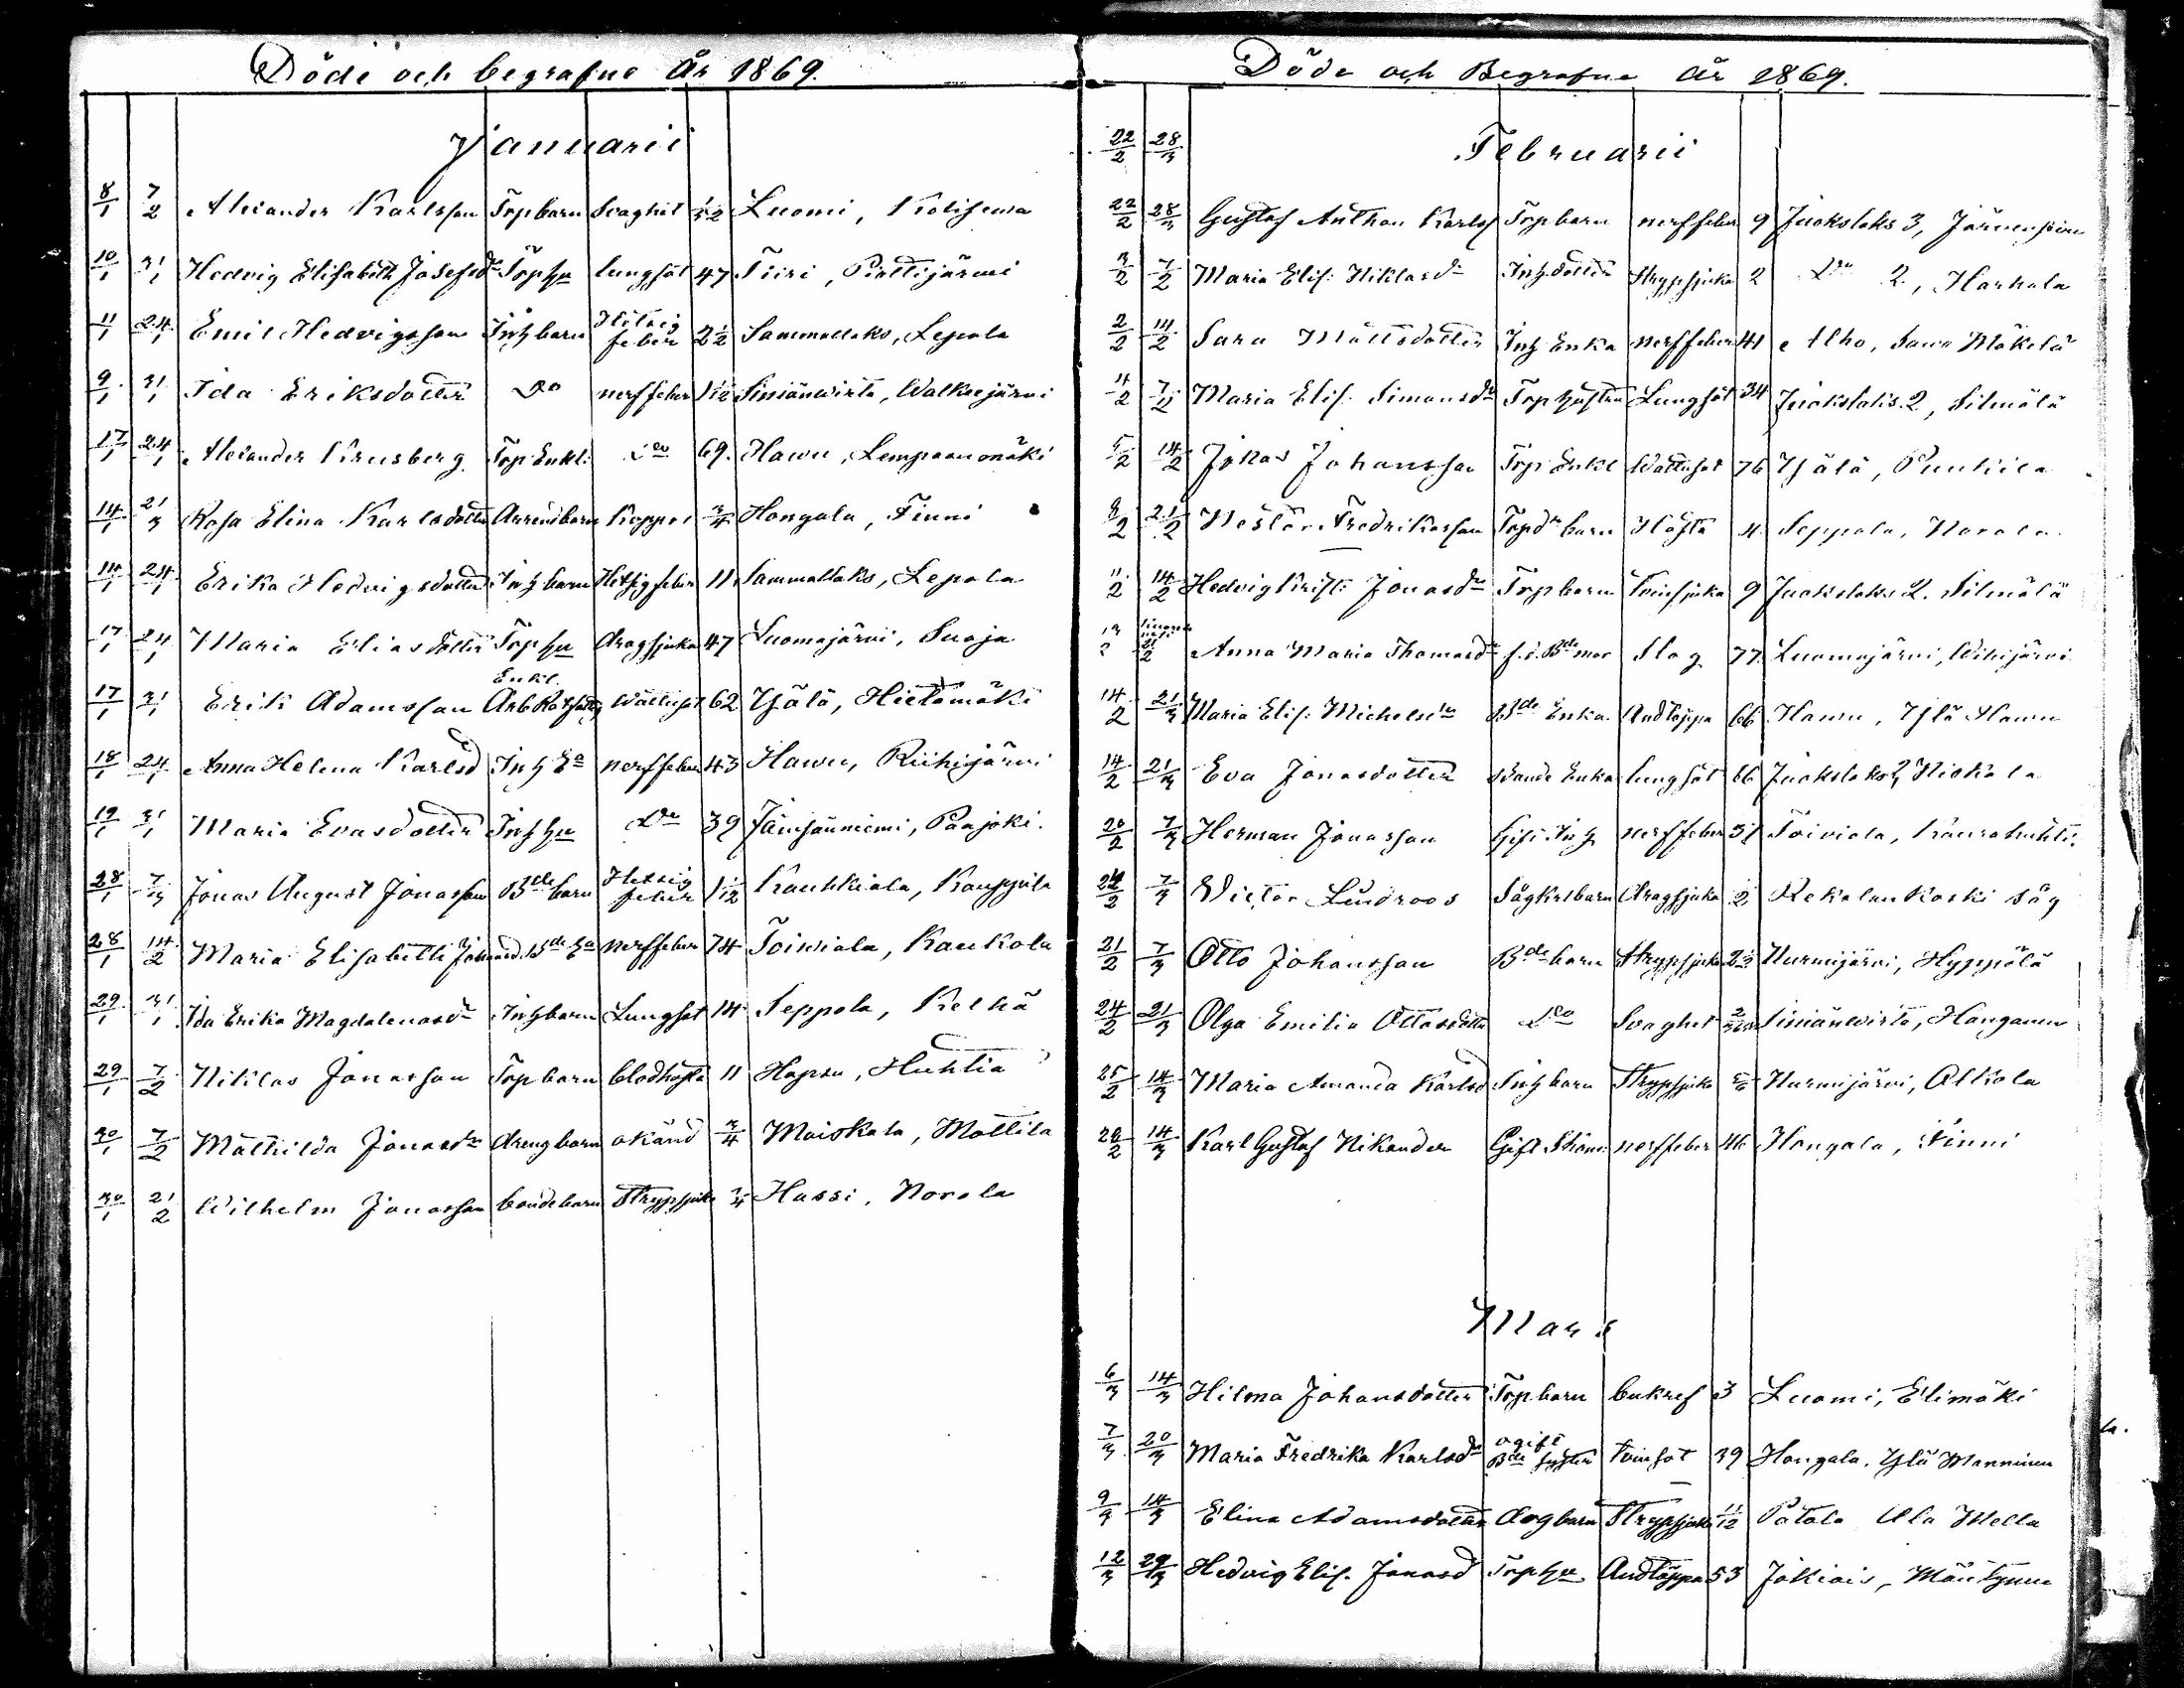 Döde och begrafne år 1869.
Januarii
8/1 7/2 Alexander Karlsson Torpbarn Svaghet 1/12 Luomi, Kolisewa
10/1 31/1 Hedvig Elisabeth Josefsdr Torphu lungsot 47 Tiiri, Pirttijärwi
11/1 24/1 Emil Hedvigsson Inhbarn Hetsig feber 2 1/2 Sammallaks, Lepola
9/1 31/1 Ida Eriksdotter Do nerffeber 1 1/12 Siniänwirta, Walkeejärwi
17/1 24/1 Alexander Krusberg Torp Enkl: Do 69. Hawu, Lempaanmäki
14/1 21/3 Rosa Elina Karlsdotter Arrendbarn Koppor 3/4 Hongala, Finni
14/1 24/1 Erika Hedvigsdotter Inhbarn Hetsig feber 11 Sammallaks, Lepola
17/1 24/1 Maria Eliasdotter Torphu dragsjuka 47 Luomajärvi, Suoja
17/1 31/1 Erik Adamsson Enkl. Arb Wattusot 62 Ypälä, Hietamäki
18/1 24/1 Anna Helena Karlsd Inh Ea nerffeber 43 Hawu, Riihijärwi
19/1 31/1 Maria Evasdotter Inhhu Do 39 Jämsänniemi, Paajoki.
28/1 7/3 Jonas August Jonasson Bdebarn Hetsig feber 1 1/12 Kauhkiala, Kauppila
28/1 14/2 Maria Elisabeth Bde Ea nerffeber 74 Toiwiala, Kaukola
29/1 31/1 Ida Erika Magdalenasdr Inhbarn Lungsot 14 Seppola, Kelhä
29/1 7/2 Niklas Jonasson Torpbarn blodhosta 11 Hapsu, Huhtia
30/1 7/2 Mathilda Jonasdr drengbarn okänd 3/4 Moiskala, Mattila
30/1 21/2 Wilhelm Jonasson bondebarn Strypsjuka 3/4 Hassi, Norola
Döde och Begrafne År 1869.
22/2 28/3 Februarii
22/2 28/3 Gustaf Anthon Karlss Torpbarn nerffeber 9 Juokslaks 3, Järvenpää
3/2 7/2 Maria Elis: Niklasdr Inhdotter Strypsjuka 2 Do 2, Harhala
2/2 14/2 Sara Mattsdotter Inh Enka nerffeber 41 Alho, Mäkelä
4/2 7/2 Maria Elis: Simonsdr Torphustru Lungsot 34 Juokslaks 2, Silmälä
5/2 14/2 Johansson Torp Enkl Wattusot 76 Ypälä, Puukila
8/2 21/2 Nestor Fredriksson Torpdr barn Hosta 4 Seppola, Norola
11/2 14/2 Hedvig Krist: Jonasdr Torpbarn Tvinsjuka 9 Juokslaks 2. Silmälä
13/2 21/2 Anna Maria Thomasdr f.d. Bdemor Slag 77. Luomajärvi, Wihijärvi
14/2 21/3 Maria Elis: Michelsdr Bde Enka Andtäppa 66 Hawu, Ylä Hawu
14/2 21/3 Eva Jonasdotter Bonde Enka lungsot 66 Juokslaks 2, Niskala
20/2 7/3 Herman Jonasson Gift Inh nerffeber 51 Toiviala, Kaurahuhti.
24/2 7/3 Victor Lindroos Sågkrlbarn Dragsjuka 2 Rekolankoski såg
21/2 7/3 Otto Johansson Bdebarn Strypsjuka 2 Nurmijärvi, Hyppölä
24/2 21/3 Olga Emilia Ottosdotter Do Svaghet Siniänwirta, Hanganen
25/2 14/3 Maria Amanda Karlsd Inhbarn Strypsjuka Nurmijärvi, Alkola
28/2 14/3 Karl Gustaf Nikander Gift nerffeber 46 Hongala, Finni
Mars
6/3 14/3 Hilma Johansdotter Torpbarn bukref 3 Luomi, Elimäki
7/3 20/3 Maria Fredrika Karlsdr ogift Bde syster tvinsot 39 Hongala. Ylä Manninen
9/3 14/3 Elina Adamsdotter Drgbarn Strypsjuka 11/12 Patala Ala Mella
12/3 29/3 Hedvig Elis. Jonasd Torphu Andtäppa 53 Jokiois, Mäntynen